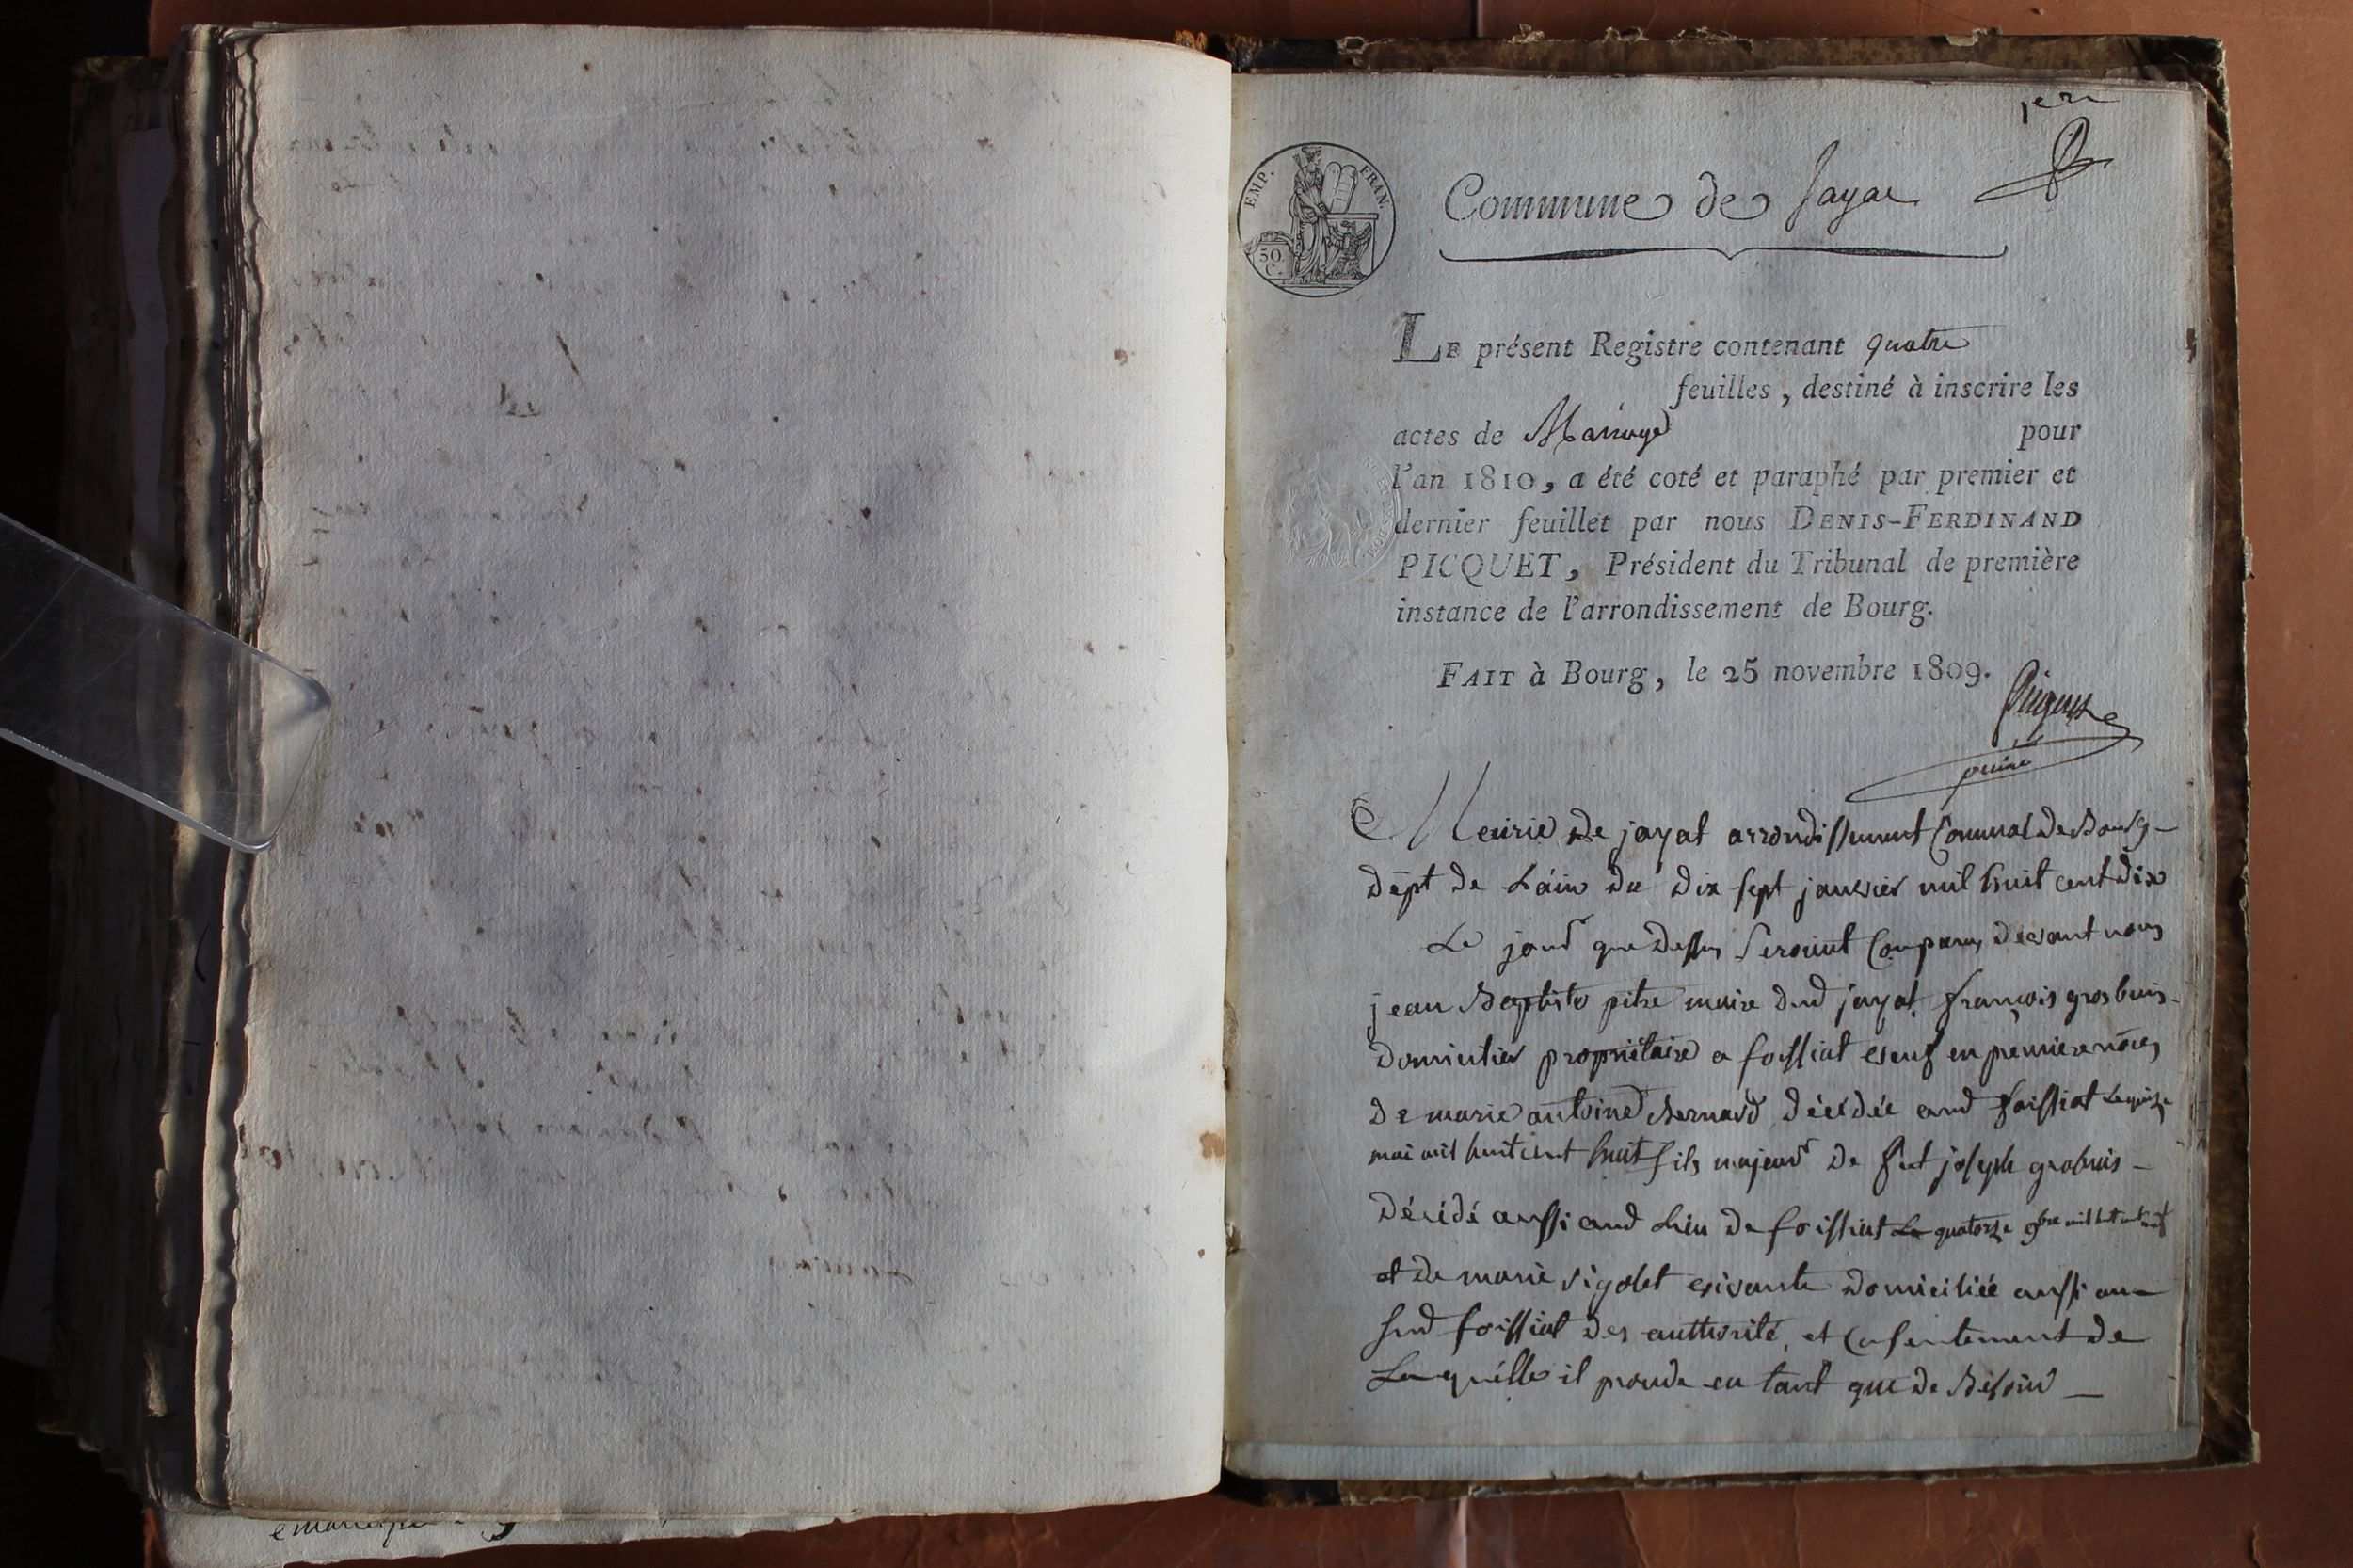 1er
EMP. FRAN.
50
C.
Commune de Jayat
LE présent Registre contenant quatre
feuilles, destiné à inscrire les
actes de Mariage pour
l'an 1810, a été coté et paraphé par premier et
dernier feuillet par nous DENIS-FERDINAND
PICQUET, Président du Tribunal de première
instance de l'arrondissement de Bourg.
FAIT à Bourg, le 25 novembre 1809.
Picquet
Meirie de jayat arrondissement Communal de Bourg
dept de L'ain du dix sept janvier mil huit cent dix
Le jour que dessus seroient Comparus devant nous
jean Baptiste pitre maire dud jayat françois grosbuis
domicilier propriétaire a foissiat veuf en premiere noces
de marie antoine Bernard décédée aud foissiat Le quinze
mai mil huit cent huit fils majeur de feut joseph grobuis
décédé aussi aud Lieu de foissiat Le quatorze 9bre mil huit cent
et de marie vigolet vivante domiciliée aussi au
sud foissiat des authorité et Consentement de
Laquélle il procede en tant que de Besoin